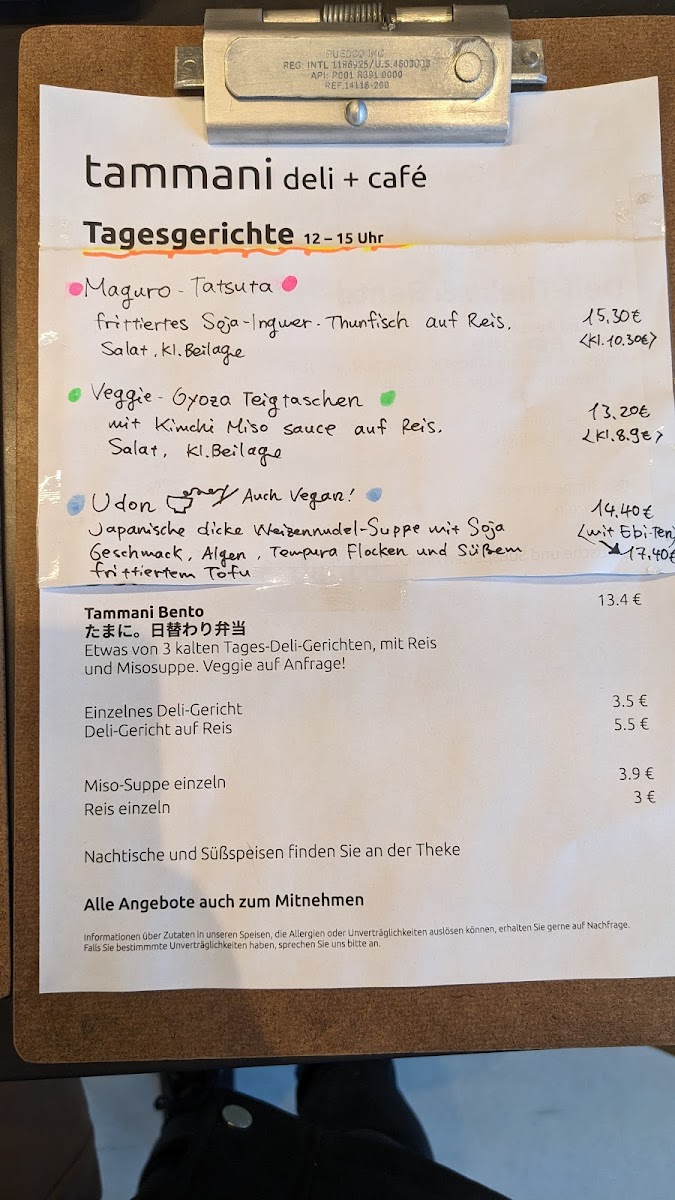 REG: INTL 1186925/U.S.4603003
API: R001 R391 0000
REF.14118-200
tammani deli + café
Tagesgerichte 12 – 15 Uhr
Maguro - Tatsuta
frittiertes Soja-Ingwer-Thunfisch auf Reis. 15,30€
Salat, Kl. Beilage <Kl. 10.30€>
Veggie - Gyoza Teigtaschen
mit Kimchi Miso sauce auf Reis. 13.20€
Salat, Kl. Beilage <Kl. 8.9€>
Udon Auch Vegan! 14.40€
Japanische dicke Weizennudel-Suppe mit Soja (mit Ebi-Ten)
Geschmack, Algen, Tempura Flocken und Süßem 17.40€
frittiertem Tofu
Tammani Bento 13.4 €
たまに。日替わり弁当
Etwas von 3 kalten Tages-Deli-Gerichten, mit Reis
und Misosuppe. Veggie auf Anfrage!
Einzelnes Deli-Gericht 3.5 €
Deli-Gericht auf Reis 5.5 €
Miso-Suppe einzeln 3.9 €
Reis einzeln 3 €
Nachtische und Süßspeisen finden Sie an der Theke
Alle Angebote auch zum Mitnehmen
Informationen über Zutaten in unseren Speisen, die Allergien oder Unverträglichkeiten auslösen können, erhalten Sie gerne auf Nachfrage.
Falls Sie bestimmmte Unverträglichkeiten haben, sprechen Sie uns bitte an.